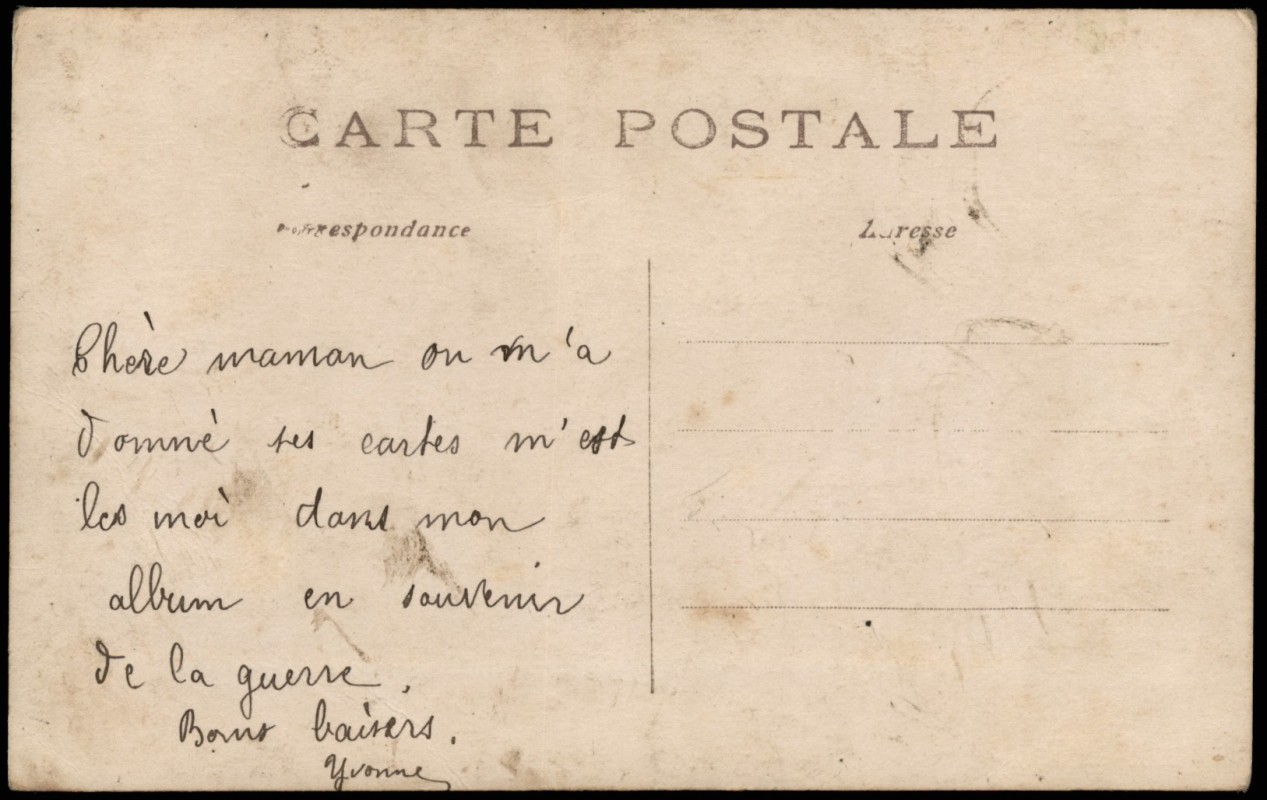 CARTE POSTALE
Correspondance
Adresse
Chère maman on m'a
donné ses cartes m'est
les moi dans mon
album en souvenir
de la guerre.
Bons baisers.
Yvonne